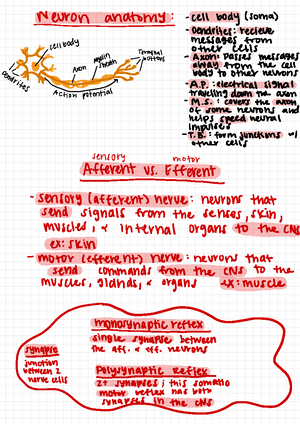 Neuron anatomy:
cell body
Dendrites
Axon
myelin
sheath
Terminal
buttons
Action potential
- cell body (soma)
- Dendrites: recieve
messages from
other cells
- Axon: Passes messages
away from the cell
body to other neurons
- A.P.: electrical signal
travelling down the axon
- M.S.: covers the axon
of some neurons and
helps speed neural
impulses
- T.B.: form junctions w/
other cells
sensory motor
Afferent vs. Efferent
- sensory (afferent) nerve: neurons that
send signals from the senses, skin,
muscles, & internal organs to the CNS
ex: skin
- motor (efferent) nerve: neurons that
send commands from the CNS to the
muscles, glands, & organs ex: muscle
monosynaptic reflex
single synapse between
the aff. & eff. neurons
synapse
junction
between 2
nerve cells
Polysynaptic Reflex
2+ synapses; this somatic
motor reflex has both
synapses in the CNS